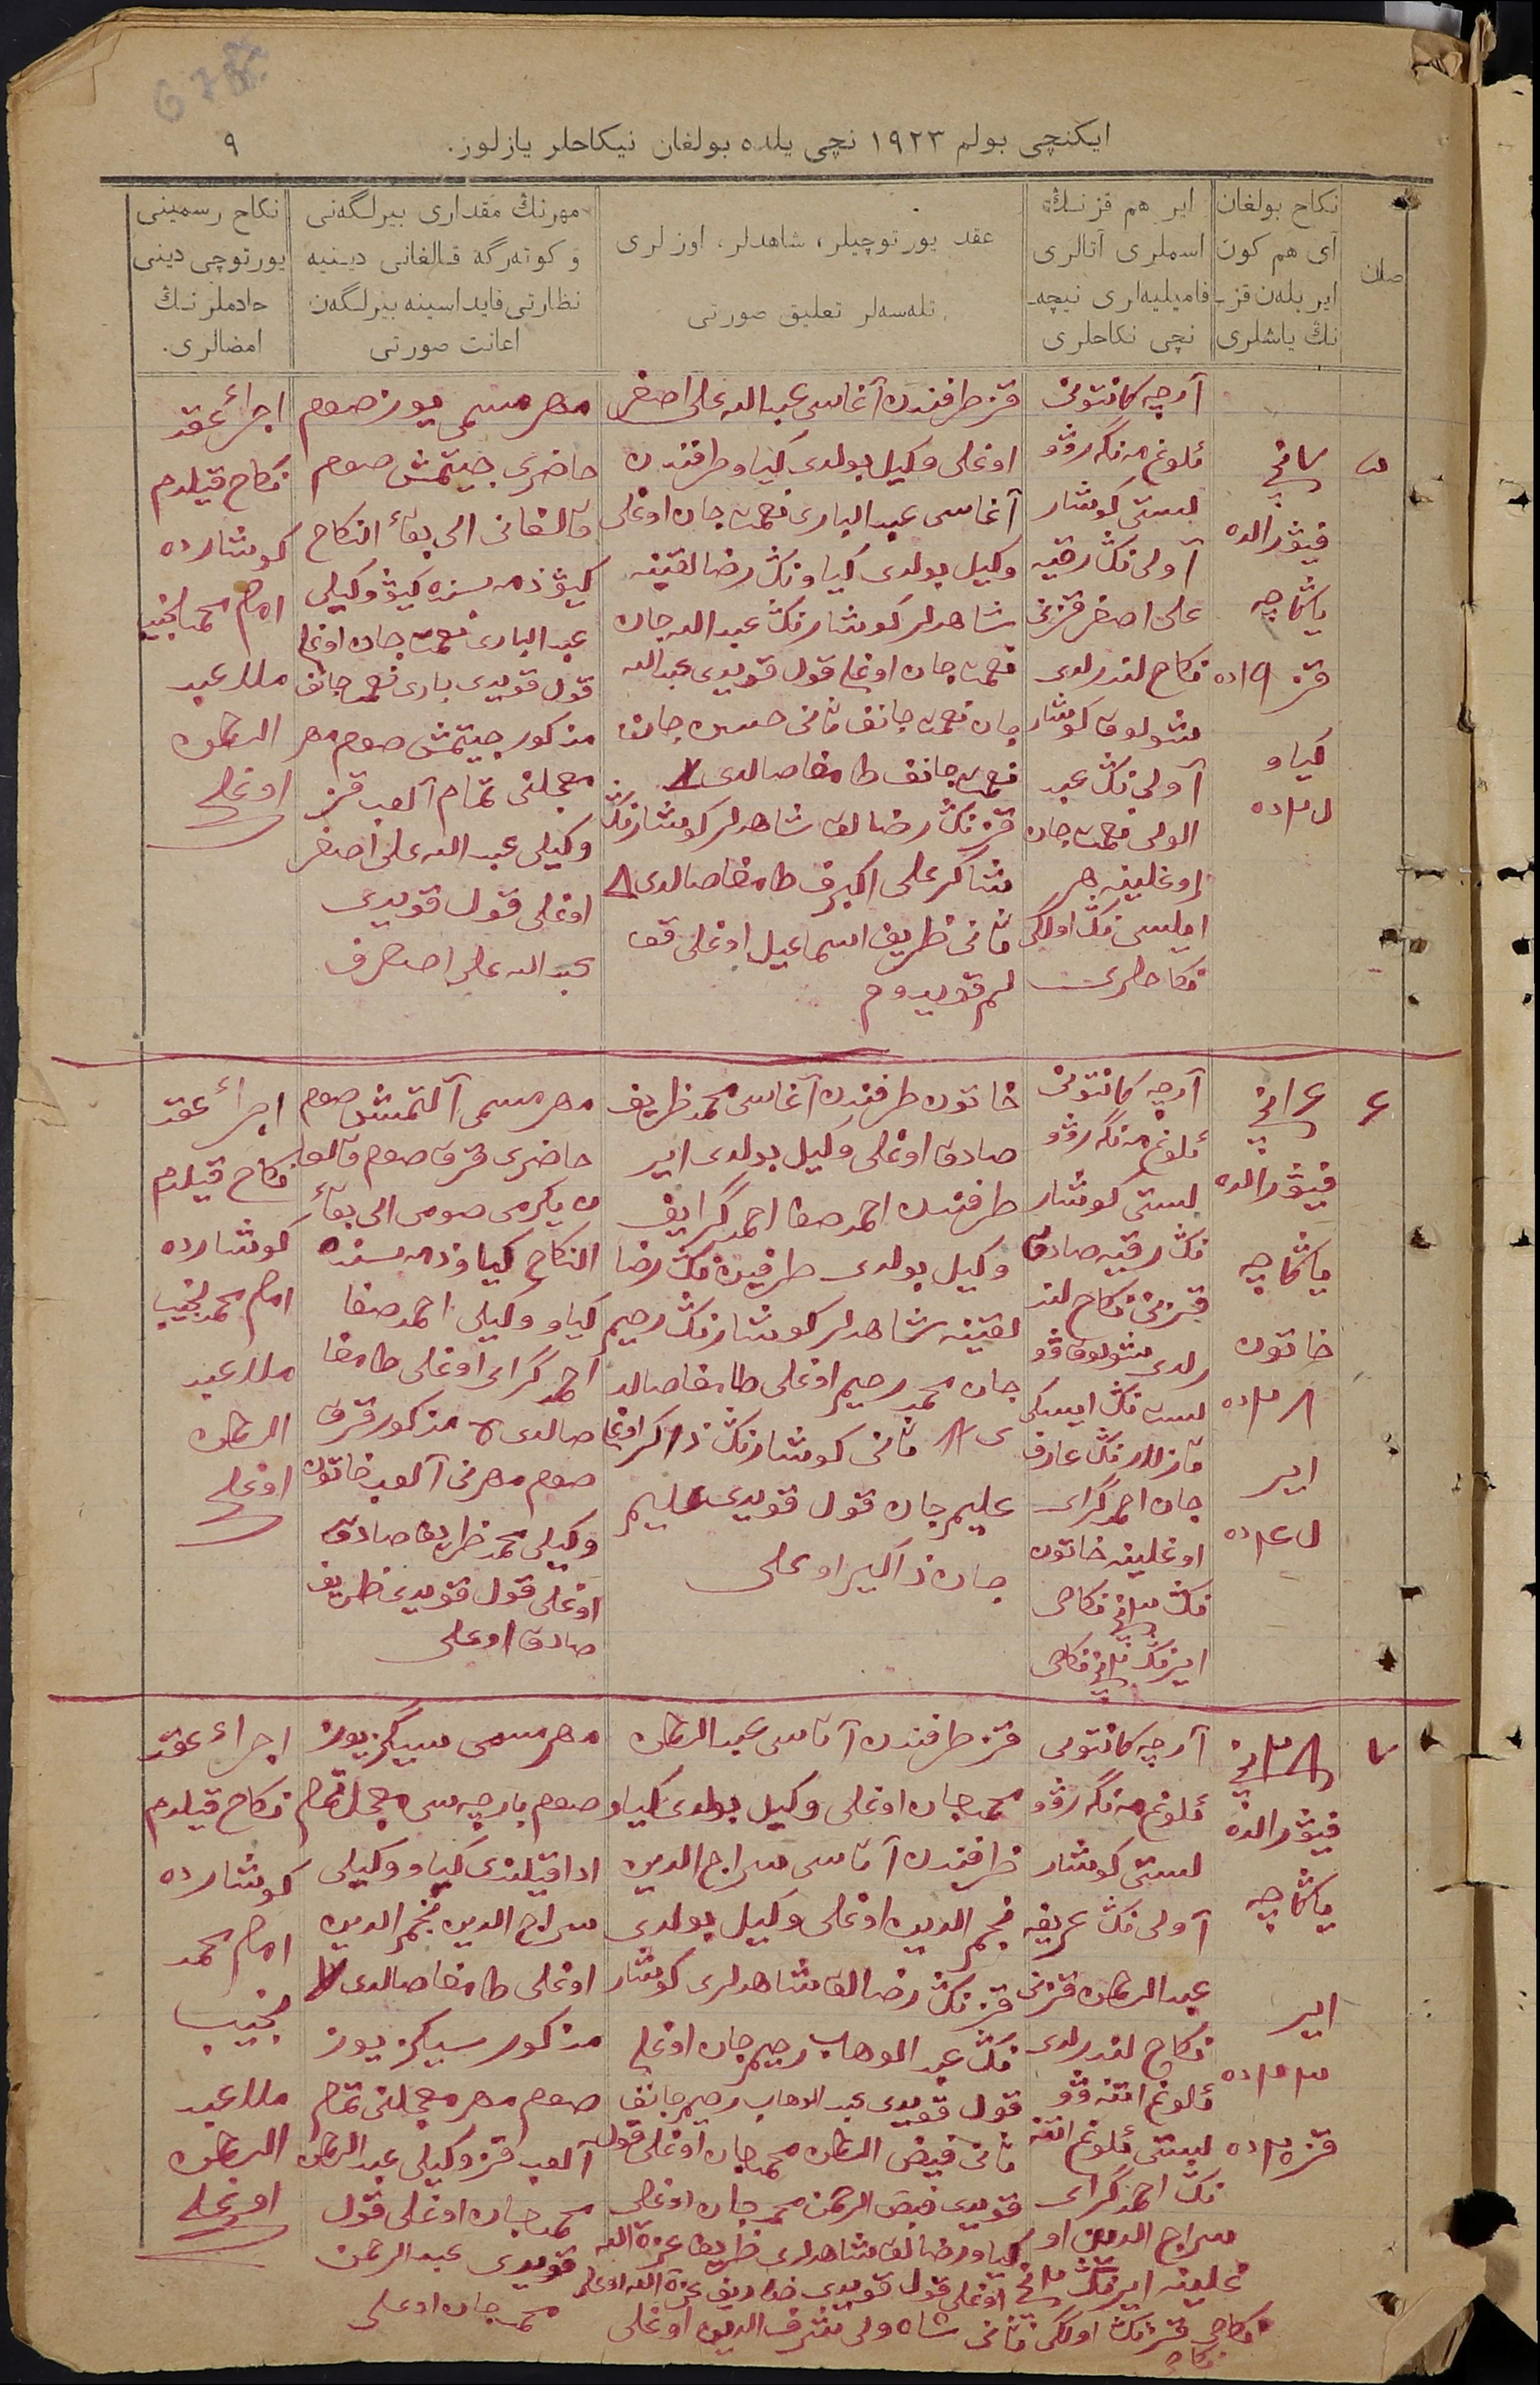 ايكنچی بولم ١٩٢٣ نچی يلده بولغان نيكاحلر يازلوز.
٩
صان
نكاح بولغان
آی هم كون
اير بلەن قز-
نڭ ياشلری
اير هم قزنڭ
اسملری آتالری
فاميليەلری نيچە-
نچی نكاحلری
عقد يورتوچيلر، شاهدلر، اوزلری
تلەسەلر تعليق صورتی
مهرنڭ مقداری بيرلگەنی
و كوتەرگە قالغانی دينيە
نظارتی فايداسينە بيرلگەن
اعانت صورتی
نكاح رسمينی
يورتوچی دينی
خادملرنڭ
امضالری.
فيورالده
ياڭاچه
قز ١٩ ده
كياو
آرچه كانتونی
لستی كوشار
آولی نڭ رقيه
علی اصغر قزنی
نكاح لندرلدی
شولوق كوشار
آولی نڭ عبد
الولی نعمت جان
اوغلينه هر
ايكسی نڭ اولگی
نكاحلری
قز طرفندن آغاسی عبد الله علی اصغر
اوغلی وكيل بولدی كياو طرفندن
آغاسی عبد الباری نعمت جان اوغلی
وكيل بولدی كياونڭ رضالقينه
شاهدلر كوشارنڭ عبد الله جان
نعمت جان اوغلی قول قويدی عبد الله
جان نعمت جانف ثانی حسن جان
نعمت جانف طامغا صالدی
قزنڭ رضالق شاهدلر كوشارنڭ
شاكر علی اكبرف طامغا صالدی
ثانی ظريف اسماعيل اوغلی قو
لم قويدوم
مهر مسمی يوز صوم
حاضری جيتمش صوم
قالغانی الی بقاء النكاح
كيو ذمه سنده كيو وكيلی
عبد الباری نعمت جان اوغلی
قول قويدی باری نعمت جانف
مذكور جيتمش صوم مهر
معجلنی تمام آلوب قز
وكيلی عبد الله علی اصغر
اوغلی قول قويدی
عبد الله علی اصغرف
اجراء عقد
نكاح قيلدم
كوشارده
امام محمد نجيب
ملا عبد
الرحمن
اوغلی
٦
فيورالده
ياڭاچه
خاتون
٢٨ ده
اير
آرچه كانتونی
لستی كوشار
نڭ رقيه صادق
قزنی نكاح لند
رلدی شولوق ڤو
لست نڭ ايسكی
قازلار نڭ عارف
جان احمد گرای
اوغلينه خاتون
نڭ نكاحی
ايرنڭ نكاحی
خاتون طرفندن آغاسی محمد ظريف
صادق اوغلی وكيل بولدی اير
طرفندن احمد صفا احمد گرايف
وكيل بولدی طرفين نڭ رضا
لقينه شاهدلر كوشارنڭ رحيم
جان محمد رحيم اوغلی طامغا صالد
ی ثانی كوشارنڭ ذاكر اوغلی
عليم جان قول قويدی عليم
جان ذاكير اوغلی
مهر مسمی آلتمش صوم
حاضری قرق صوم قالغا
ن يكرمی صومی الی بقاء
النكاح كياو ذمه سنده
كياو وكيلی احمد صفا
احمد گرای اوغلی طامغا
صالدی مذكور قرق
صوم مهرنی آلوب خاتون
وكيلی محمد ظريف صادق
اوغلی قول قويدی ظريف
صادق اوغلی
اجراء عقد
نكاح قيلدم
كوشارده
امام محمد نجيب
ملا عبد
الرحمن
اوغلی
٧
فيورالده
ياڭاچه
اير
آرچه كانتونی
لستی كوشار
آولی نڭ عريفه
عبد الرحمن قزنی
نكاح لندرلدی
نڭ احمد گرای
سراج الدين او
غلينه ايرنڭ
نكاحی قزنڭ اولگی
نكاح
قز طرفندن آتاسی عبد الرحمن
محمد جان اوغلی وكيل بولدی كياو
طرفندن آتاسی سراج الدين
نجم الدين اوغلی وكيل بولدی
قزنڭ رضالق شاهدلری كوشار
نڭ عبد الوهاب رحيم جان اوغلی
قول قويدی عبد الوهاب رحيم جانف
ثانی فيض الرحمن محمد جان اوغلی قول
قويدی فيض الرحمن محمد جان اوغلی
كياو رضالق شاهدلری ظريف عزة الله
اوغلی قول قويدی ظريف عزة الله اوغلی
ثانی شاه ولی شرف الدين اوغلی
مهر مسمی سيگز يوز
صوم بارچه سی معجل تمام
ادا قيلندی كياو وكيلی
سراج الدين نجم الدين
اوغلی طامغا صالدی
مذكور سيكز يوز
صوم مهر معجلنی تمام
آلوب قز وكيلی عبد الرحمن
محمد جان اوغلی قول
قويدی عبد الرحمن
محمد جان اوغلی
اجراء عقد
نكاح قيلدم
كوشارده
امام محمد
نجيب
ملا عبد
الرحمن
اوغلی